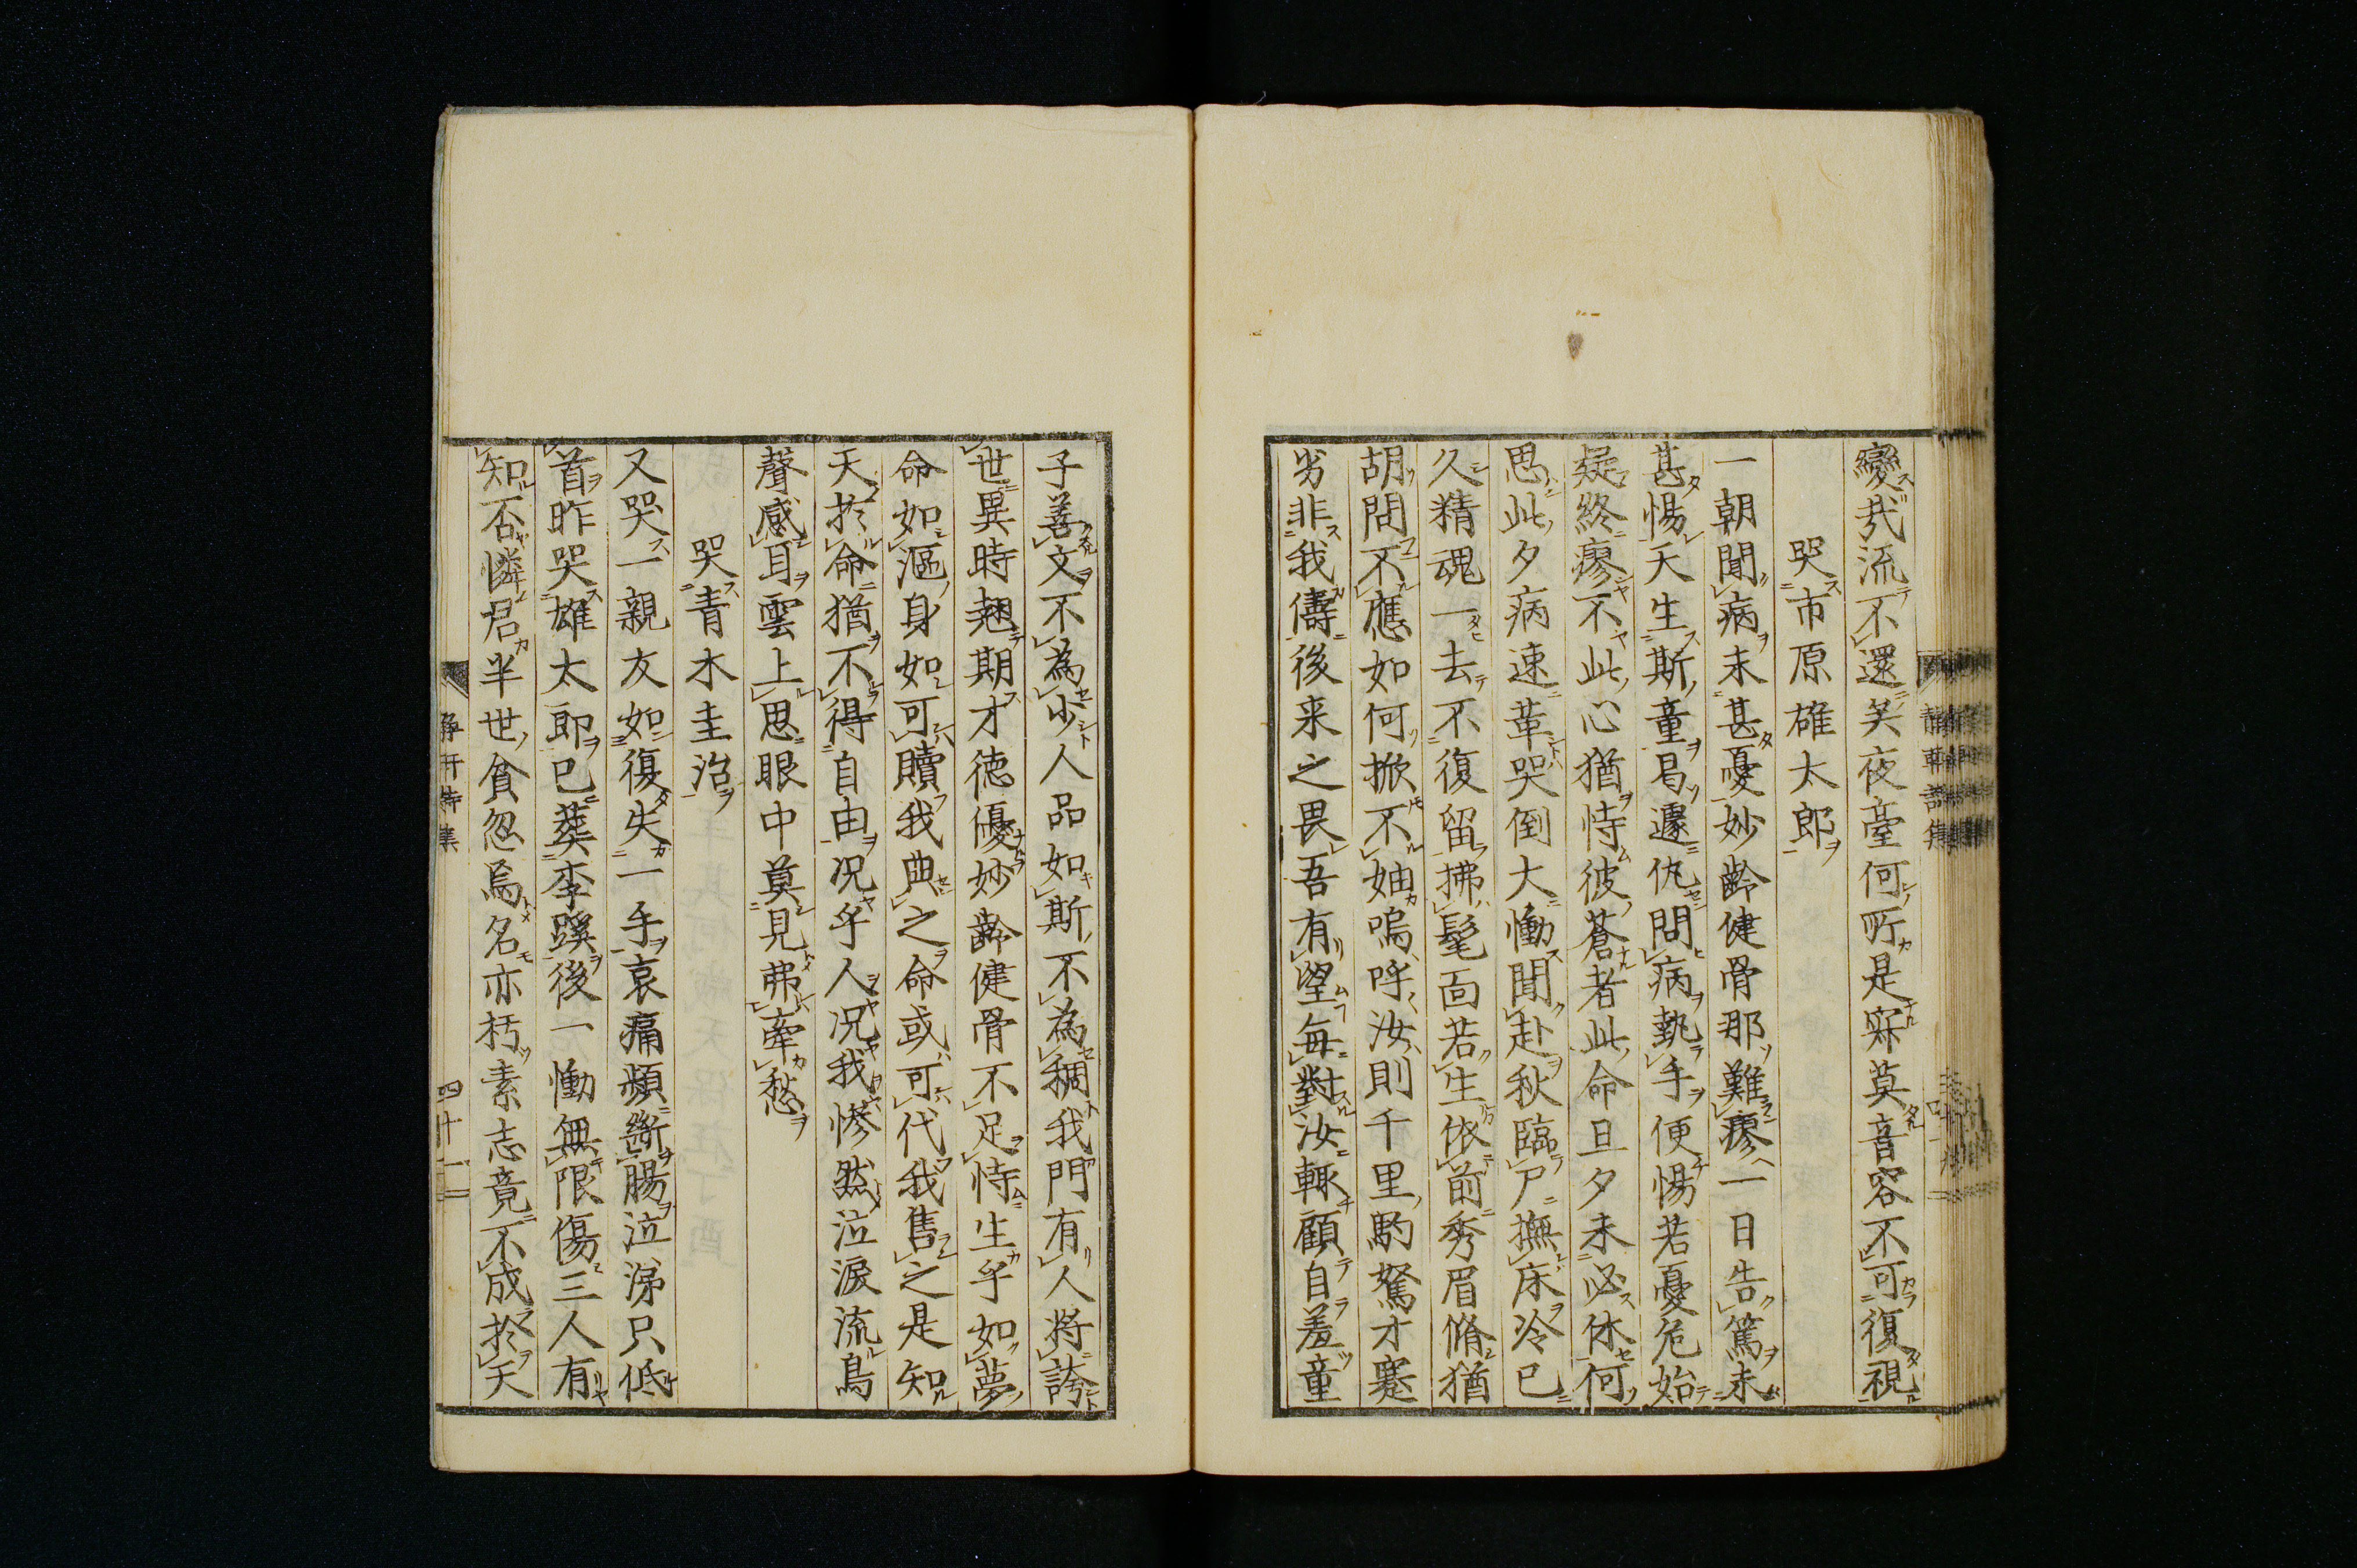 變哉流不還笑夜臺何所是寐莫音容不可復視
哭市原雄太郎
一朝聞病未甚憂妙齡健骨那難瘳一日告篤未
甚惕天生斯童曷遽仇問病執手便惕若憂危始
疑終瘳不此心猶恃彼蒼者此命旦夕未必休何
思此夕病速革哭倒大慟聞赴秋臨尸撫床冷已
久精魂一去不復留拂髦面若生依前秀眉脩猶
胡問不應如何掀不妯嗚呼汝則千里駒駑才蹇
劣非我儔後来之畏吾有望每對汝輙顧自羞童
子善文不為少人品如斯不為稠我門有人將誇
世異時翹期才徳優妙齡健骨不足恃生乎如夢
命如漚身如可贖我典之命或可代我售之是知
天於命猶不得自由况乎人况我惨然泣淚流鳥
聲感耳雲上思眼中莫見弗牽愁
哭青木圭治
又哭一親友如復失一手哀痛頻斷腸泣涕只低
首昨哭雄太郎已葬李蹊後一慟無限傷三人有
知否憐君半世貧忽焉名亦朽素志竟不成於天
四十一